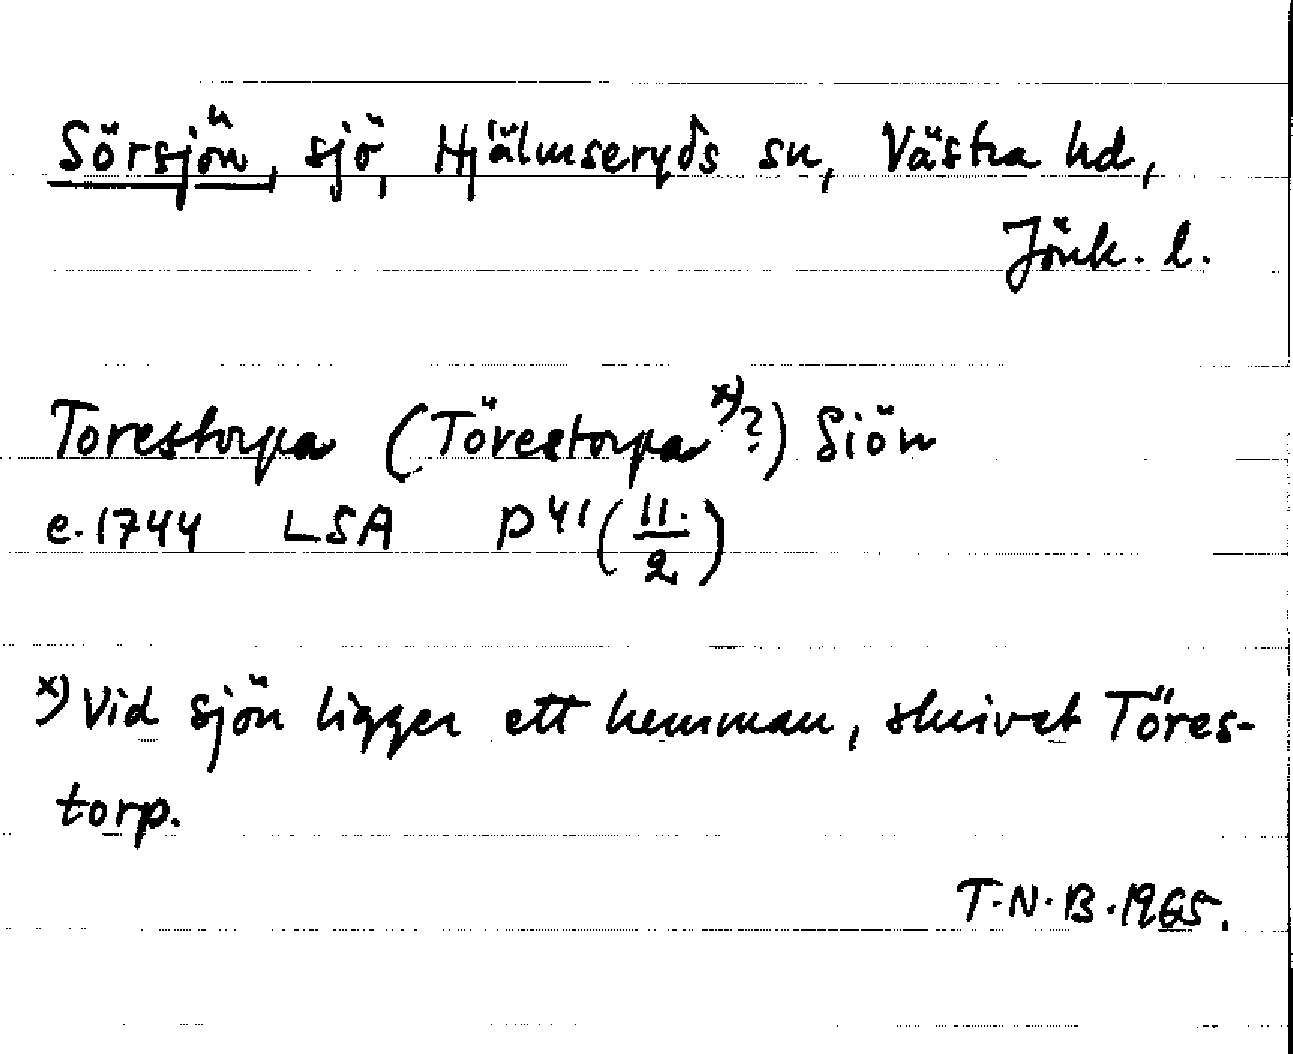 Sörsjön, sjö, Hjälmseryds sn, Västra hd,
Jönk. l.
Torestorpa (Törestorpa x)?) Siön
e. 1744 LSA P 41 (11./2)
x) Vid sjön ligger ett hemman, skrivet Töres-
torp.
T.N.B. 1965.